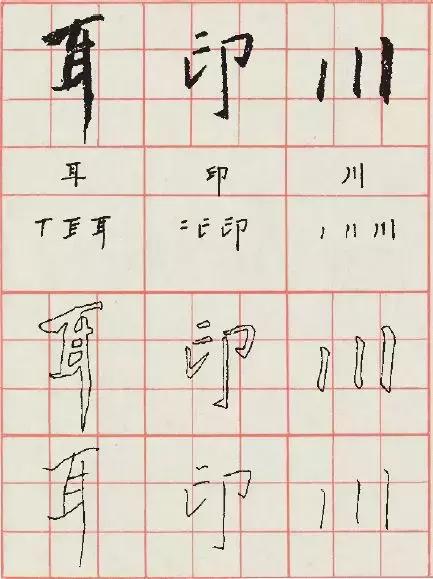 耳 印 川
耳 印 川
耳 印 川
耳 印 川
耳 印 川